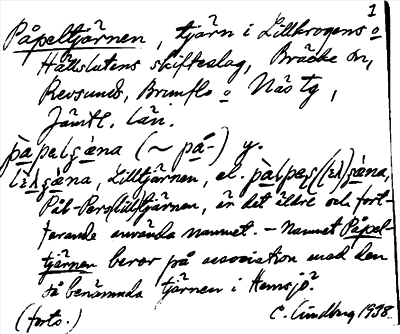 1
Påpeltjärnen, tjärn i Lillkrogens o
Hällslutens skifteslag, Bräcke sn,
Revsunds, Brunflo o Näs tg,
Jämtl. län.
pàpelʂæna (~ pá-) y.
Lilltjärnen, el.
Pål-Pers(lill)tjärnen, är det äldre och fort-
farande använda namnet. – Namnet Påpel-
tjärnen beror på association med den
så benämnda tjärnen i Hemsjö?
(forts.) C. Lindberg 1938